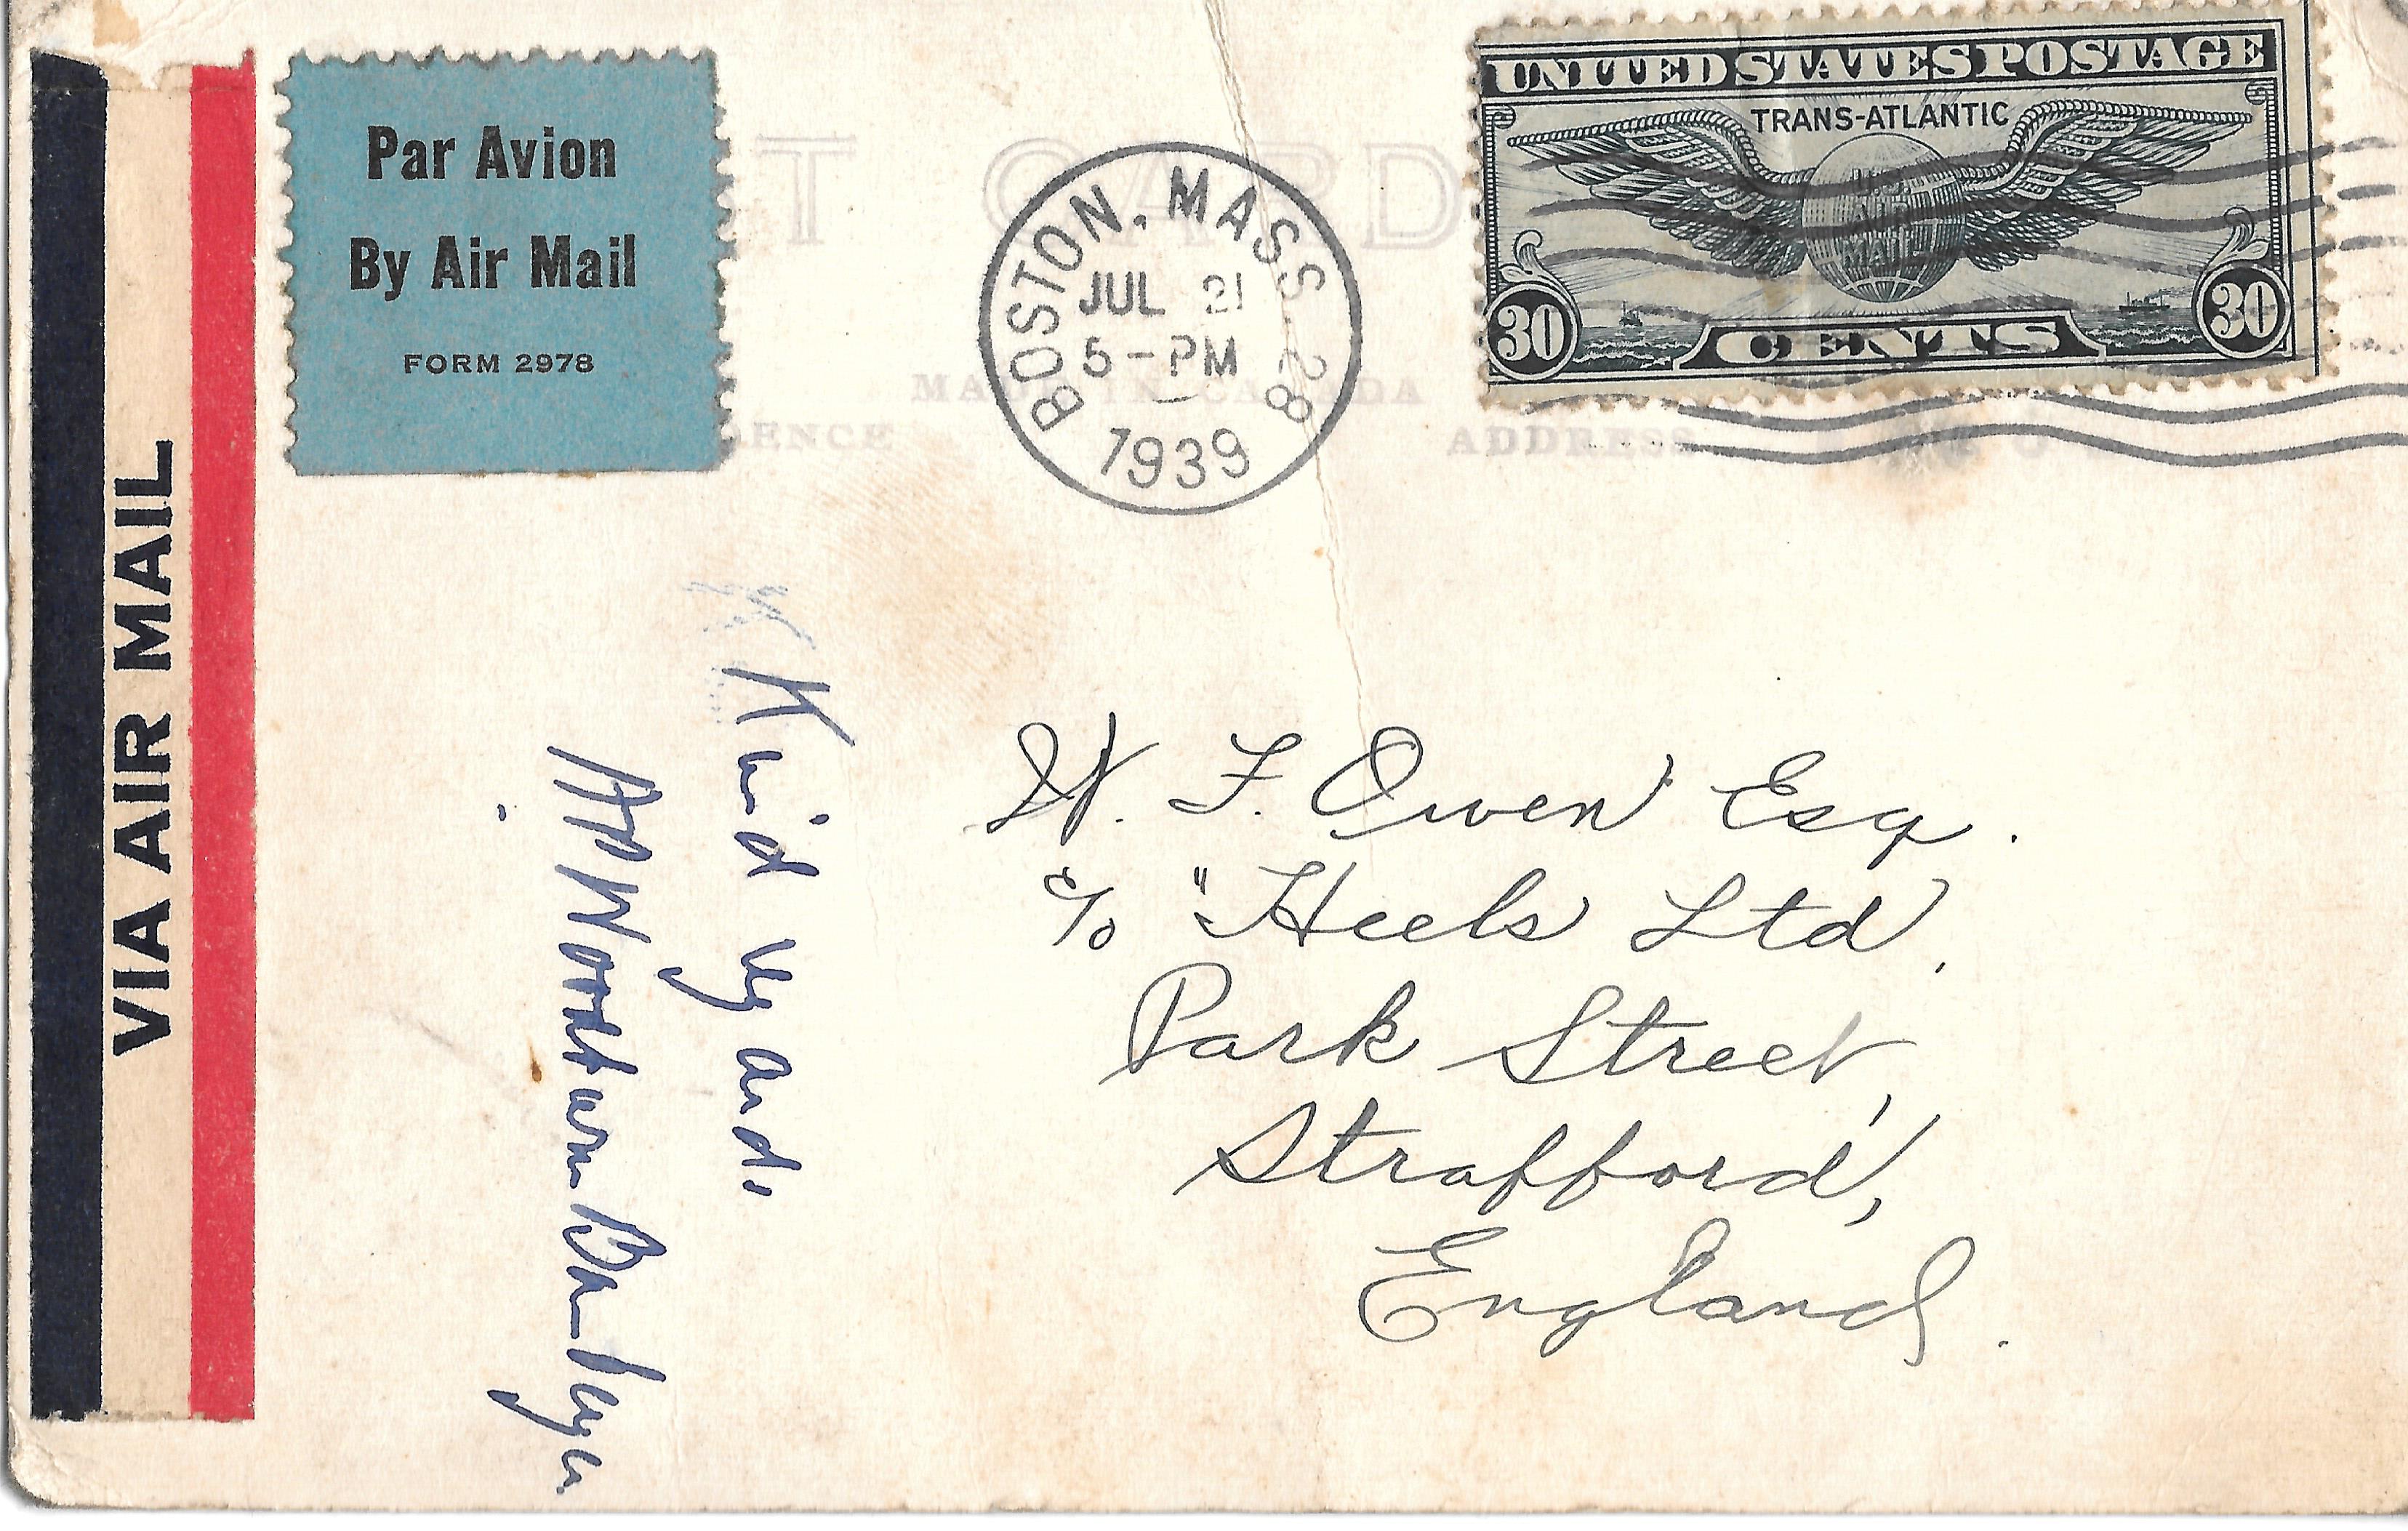 UNITED STATES POSTAGE
TRANS-ATLANTIC
U.S.
AIR
MAIL
30 CENTS 30
Par Avion
By Air Mail
FORM 2978
VIA AIR MAIL
T CARD
BOSTON, MASS. 28
JUL 21
5-PM
1939
MADE IN CANADA
ENCE
ADDRESS
W. F. Owen Esq.
c/o "Heels Ltd.
Park Street,
Strafford,
England.
Kind